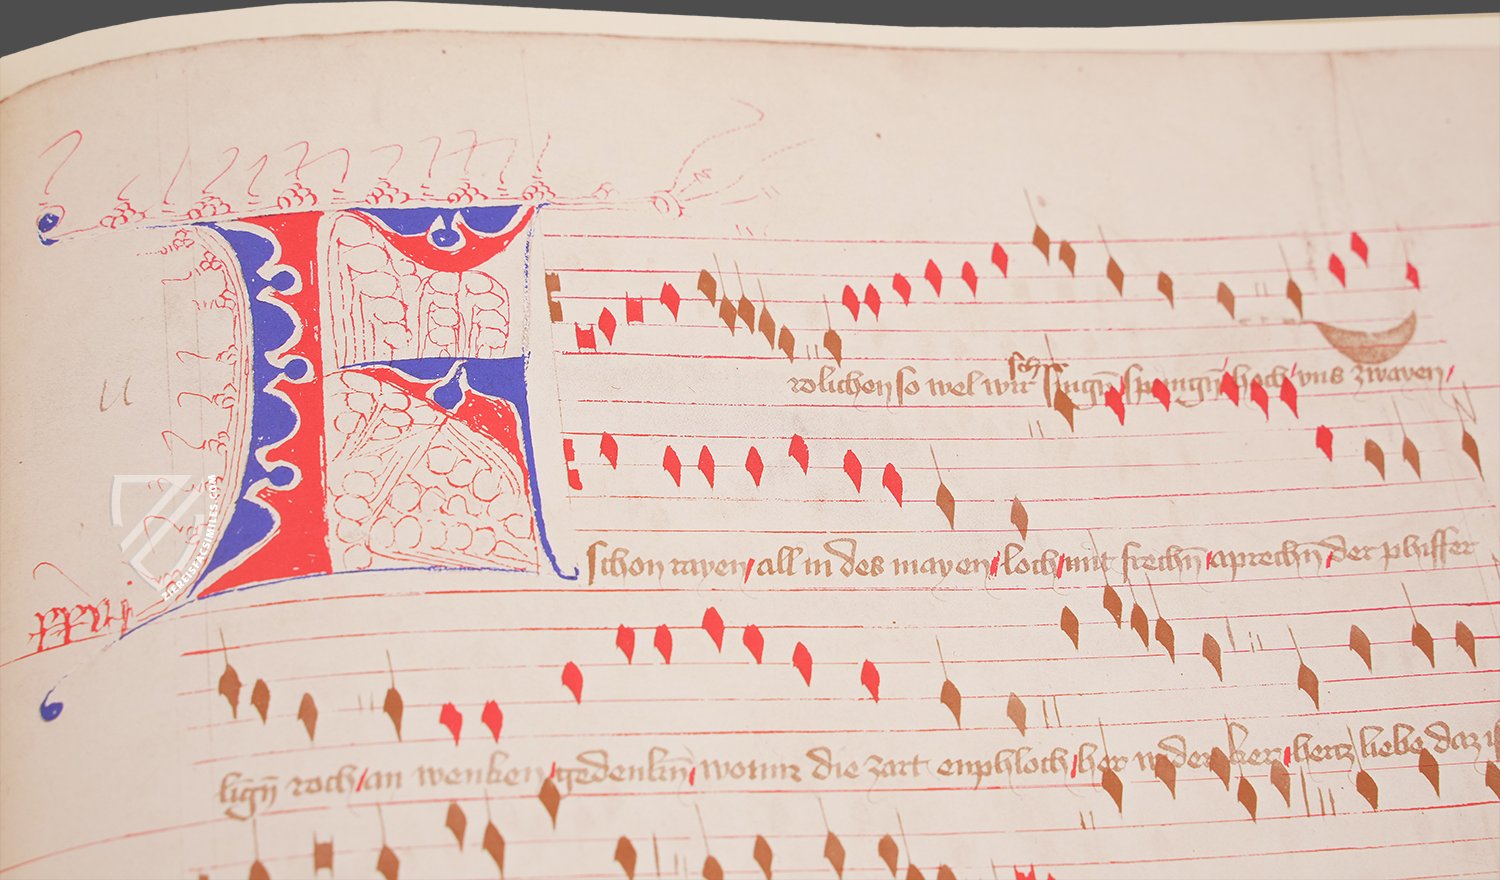 F
rolichen so wel wir schir singn / springn / hoch / vns zwayen /
schon rayen / all in des mayen / loch / mit frechn / sprechn / der phiffer
lign roch / an wenken / gedenkn / womir die zart enphloch / her wider ker / hertz liebe daz
ZIEREISFACSIMILES.COM